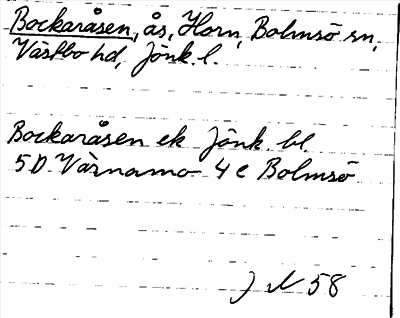 Bockaråsen, ås, Horn, Bolmsö sn,
Västbo hd, Jönk. l.
Bockaråsen ek Jönk. bl.
5D Värnamo 4e Bolmsö
58